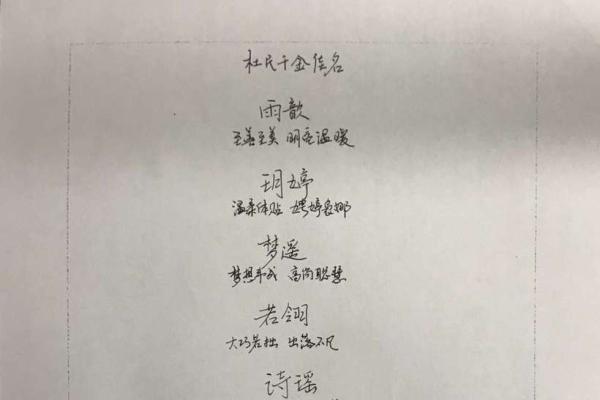 杜氏千金佳名
雨歆
至善至美 明亮温暖
玥婷
温柔体贴 娉婷袅娜
梦遥
梦想成 高尚聪慧
若翎
大巧若拙 出落不凡
诗瑶